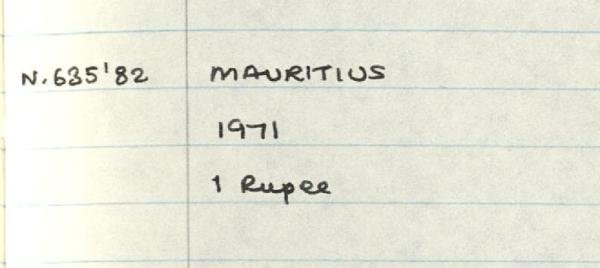 N.635'82 MAURITIUS
1971
1 Rupee